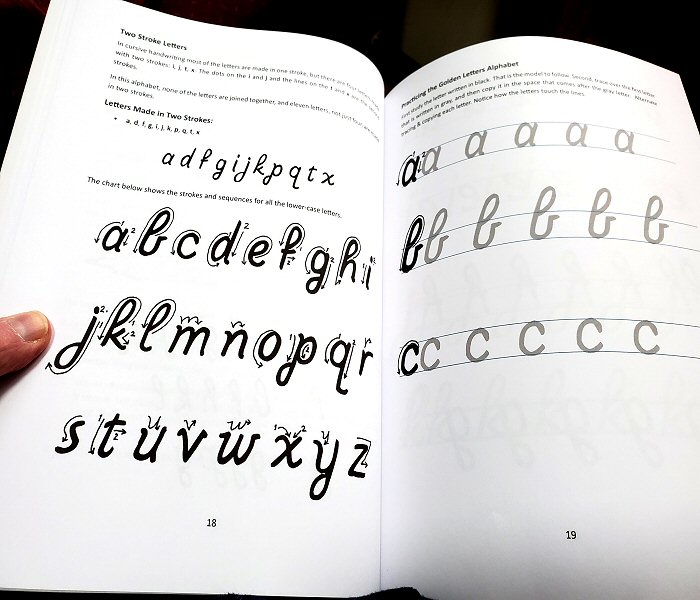 Two Stroke Letters
In cursive handwriting most of the letters are made in one stroke, but there are four letters made
with two strokes: i, j, t, x. The dots on the i and j and the lines on the t and x are the
strokes.
In this alphabet, none of the letters are joined together, and eleven letters, not just four are made
in two strokes.
Letters Made in Two Strokes:
• a, d, f, g, i, j, k, p, q, t, x
a d f g i j k p q t x
The chart below shows the strokes and sequences for all the lower-case letters.
a b c d e f g h i
j k l m n o p q r
s t u v w x y z
18
Practicing the Golden Letters Alphabet
First study the letter written in black. That is the model to follow. Second, trace over the first letter
that is written in gray, and then copy it in the space that comes after the gray letter. Alternate
tracing & copying each letter. Notice how the letters touch the lines.
a a a a a a
b b b b b b
c c c c c c
19